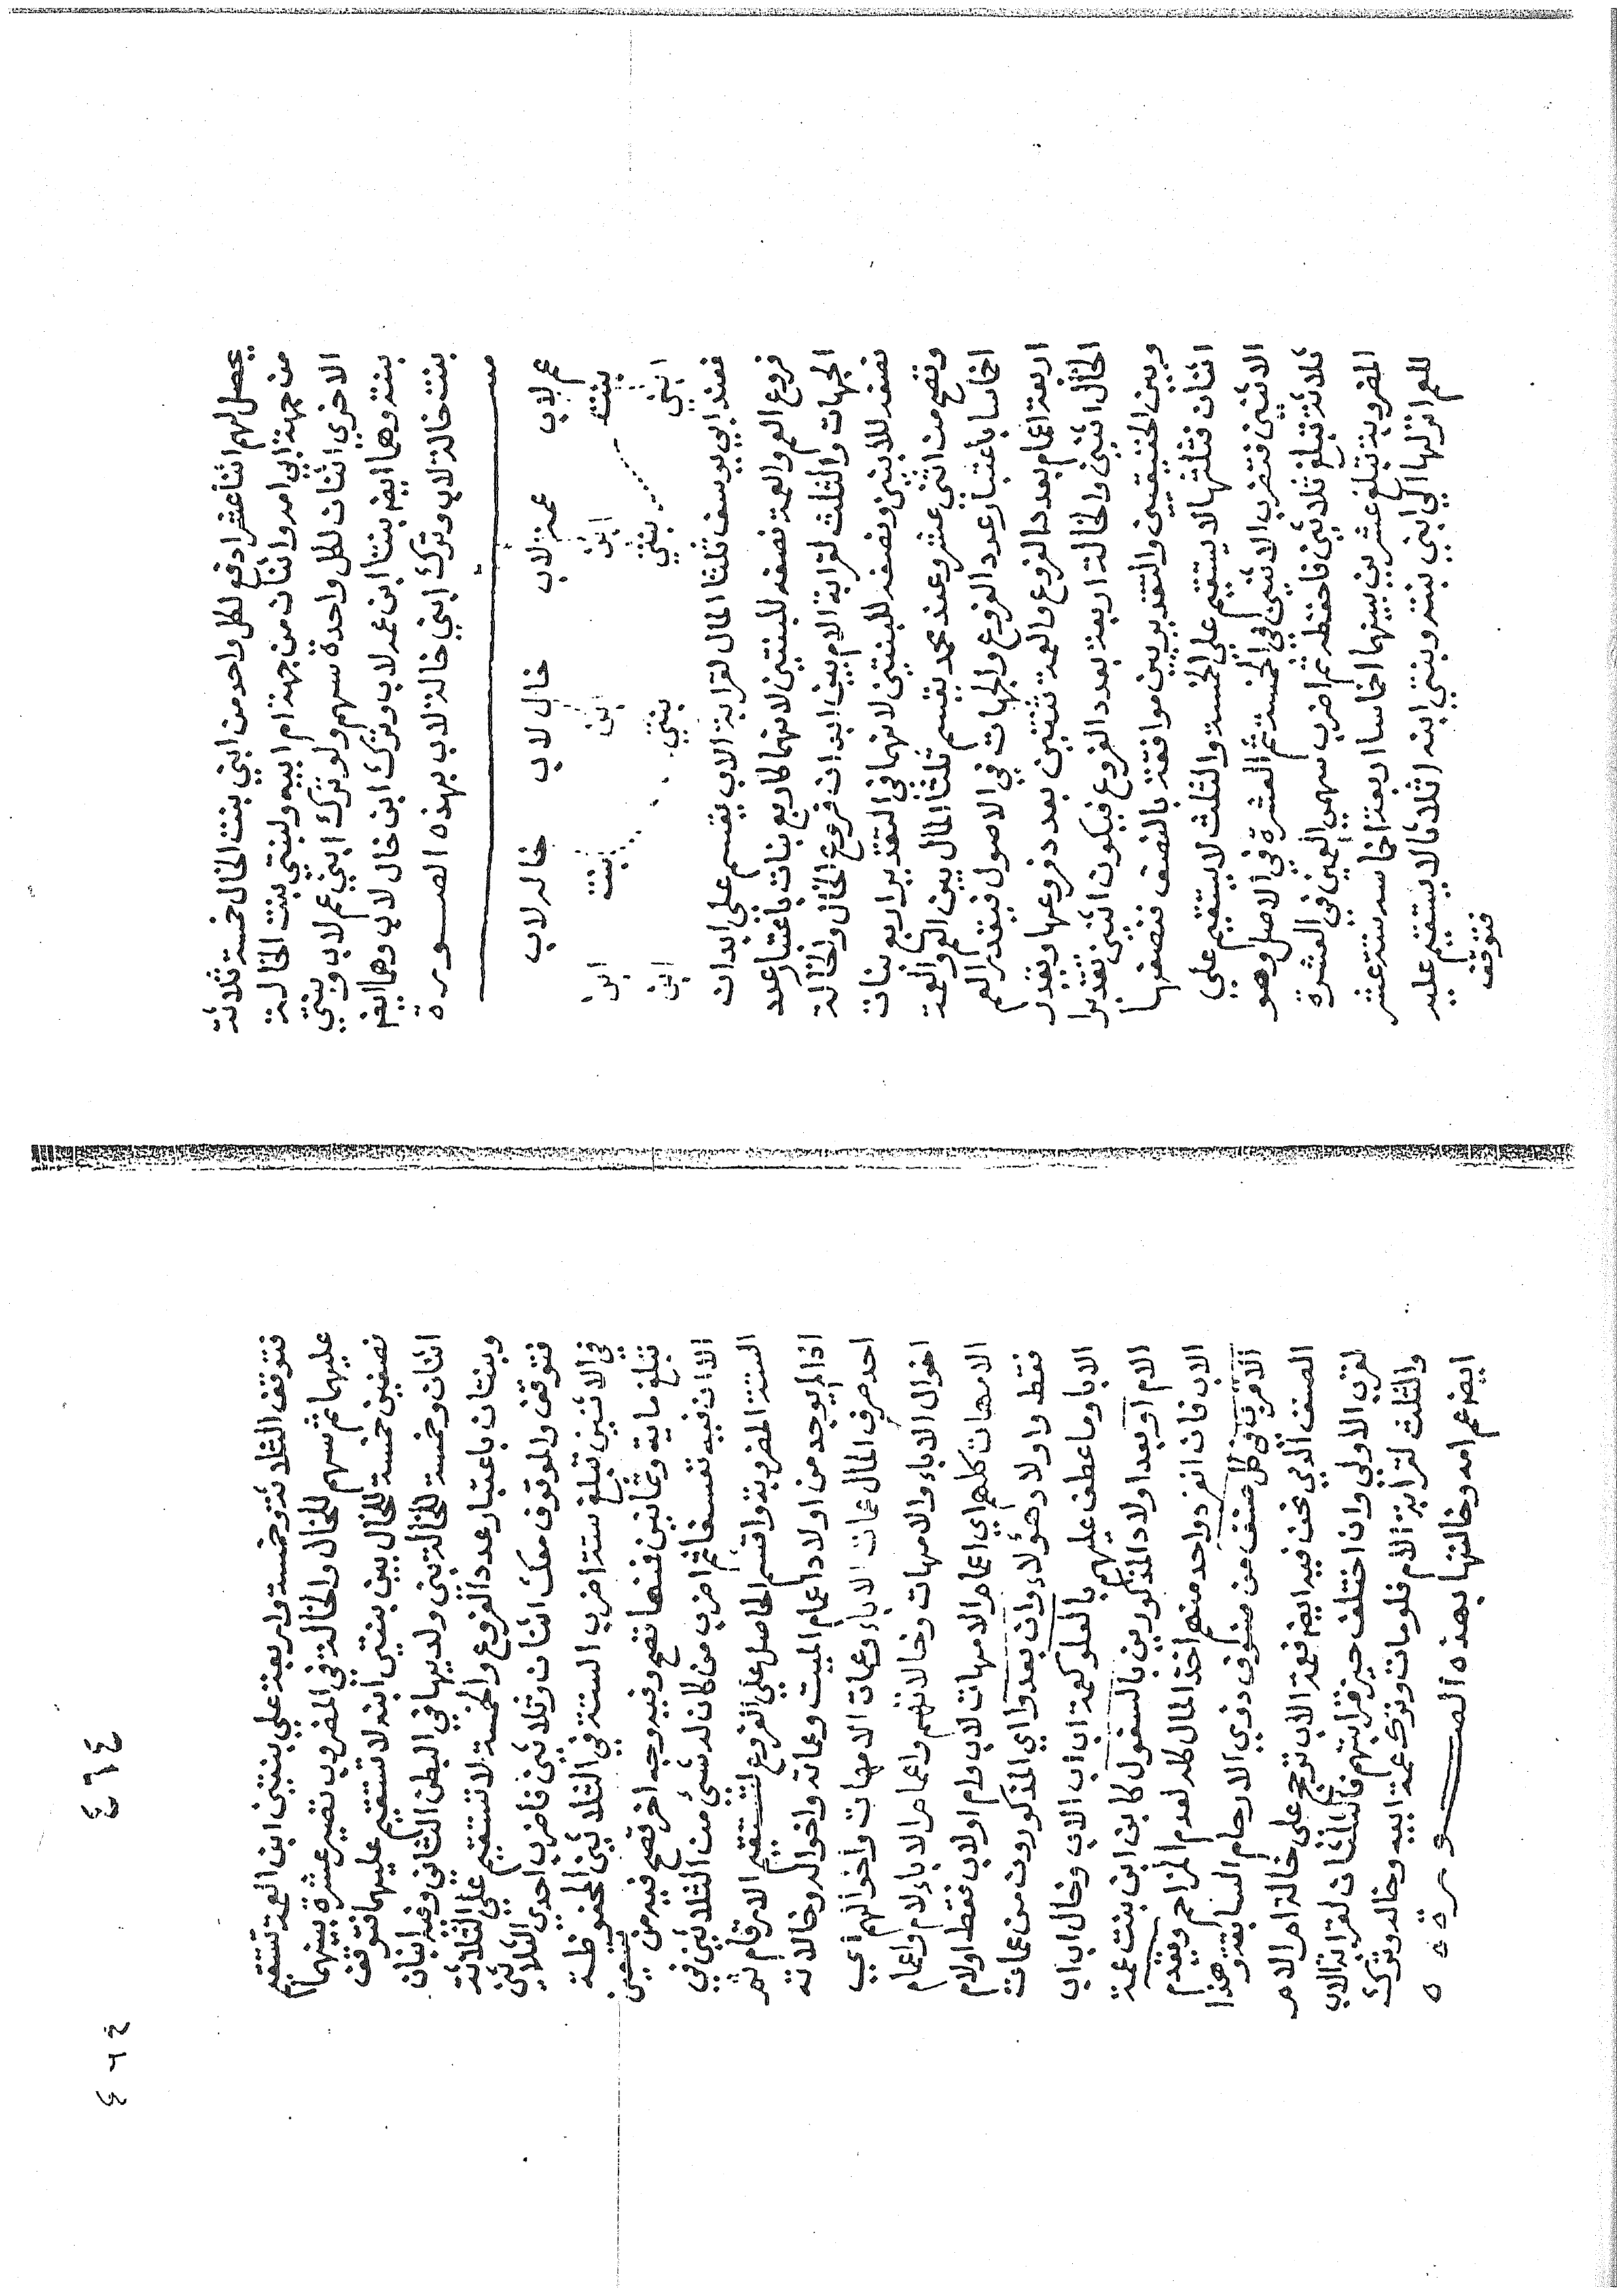 يحصل لهم اثنا عشر ادفع لكل واحد من ابني بنت الخال خمسة ثلاثة
من جهة ابي امه واثنان من جهة ام ابيه ولبنتي بنت الخالة
الاخرى اثنان لكل واحدة سهم ولو ترك ابني عم لاب وبنتي
بنته وهما ايضا بنتا ابن عمه لاب وترك ابن خال لاب وهما ايض
بنت خالة لاب وترك ابني خالة لاب بهذه الصــورة
عم لاب عمة لاب خال لاب خاله لاب
بنت ابن ابن بنت ابن
ابني بنتي بنتي ابن
فعند ابي يوسف ثلثا المال لقرابة الاب يقسم علي ابدان
فروع العم والعمة نصفه للبنتين لانهما كاربع بنات باعتبار عدد
الجهات والثلث لقرابة الام بين ابدان فروع الخال والخالة
نصفه للابنين ونصفه للبنتين لانهما في التقدير اربع بنات
وتصح من اثني عشر وعند محمد يقسم ثلثا المال بين العم والعمة
اخماسا باعتبار عدد الفروع والجهات في الاصول فيقدر العم
اربعة اعمام بعدد الفروع والعمة ثنتين بعدد فروعها ويقدر
الخال اثنين والخالة اربعة بعدد الفروع فيكون اثنين تقديرا
وبين الحقيقيين والتقديريين موافقة بالنصف فنصفها
اثنان فثلثها لا يستقيم علي الخمسة والثلث لا يستقيم علي
الاثنين فتضرب الاثنين في الخمسة ثم العشرة في الاصل وهو
ثلاثة تبلغ ثلاثين فاحفظه ثم اضرب سهمي العين في العشرة
المضروبة تبلغ عشرين بينهما اخماسا اربعة اخماسه ستة عشر
للعم انزلها الي ابني بنته وبنتي ابنه اثلاثا لا يستقيم عليه
فتوقف
٤٩٤
فتوقف الثلاثة وخمسة واربعة علي بنتين ابن العمة تستقيم
عليهما ثم سهم للخال والخالة في المضروب تصير عشرة بينهما
نصفين خمسة للخال بين بنتي ابنه لا تستقيم عليهما فتوقف
اثنان وخمسة للخالة بين ولديها في البطن الثاني وفيه ابنان
وبنتان باعتبار عدد الفروع والخمسة لا تستقيم علي الثلاثة
فتوقف والموقوف معك اثنان وثلاثين فاضرب احدي الثلاثين
في الاثنين تبلغ ستة اضرب الستة في الثلاثين المحفوظة
تبلغ ماية وثمانين فمنها تصح وفيه وجه اخر تصح فيه من ستين
الا ان فيه تعسفا ثم اضرب من كان له شي من الثلاثين في
الستة المضروبة واقسم الحاصل علي الفروع لتستقيم الارقام ثم
اذا لم يوجد من اولاد اعمام الميت وعماته واخواله وخالاته
احد صرف المال عمات الاباء وعمات الامهات واخوالهم اي
اخوال الاباء والامهات وخالاتهم واعمام الاباء لام واعمام
الامهات كلهم اي اعمام الامهات لاب وام او لاب فقط او لام
فقط واولاد هؤلاء وان بعدوا اي المذكورون من عمات
الابا وما عطف عليهم بالعلو كعمة اب اب الاب وخال اب اب
الام او بعد اولاد المذكورين بالسفول كابن ابن بنت عمة
الاب فان انفرد واحد منهم اخذ المال كله لعدم المزاحم ويقدم
الاقرب في كل صنف من صنوف ذوي الارحام السابقة وهذا
الصنف الذي نحن فيه ايضا فعمة الاب ترجح على خالة ام الام
لقرب الاولي وان اختلف حيز قرابتهم فالثلثان لقرابة الاب
والثلث لقرابة الام فلو مات وترك عمة ابيه وخاله وترك
ايضا عم امه وخالتها بهذه الصــورة ه
٤٩٤